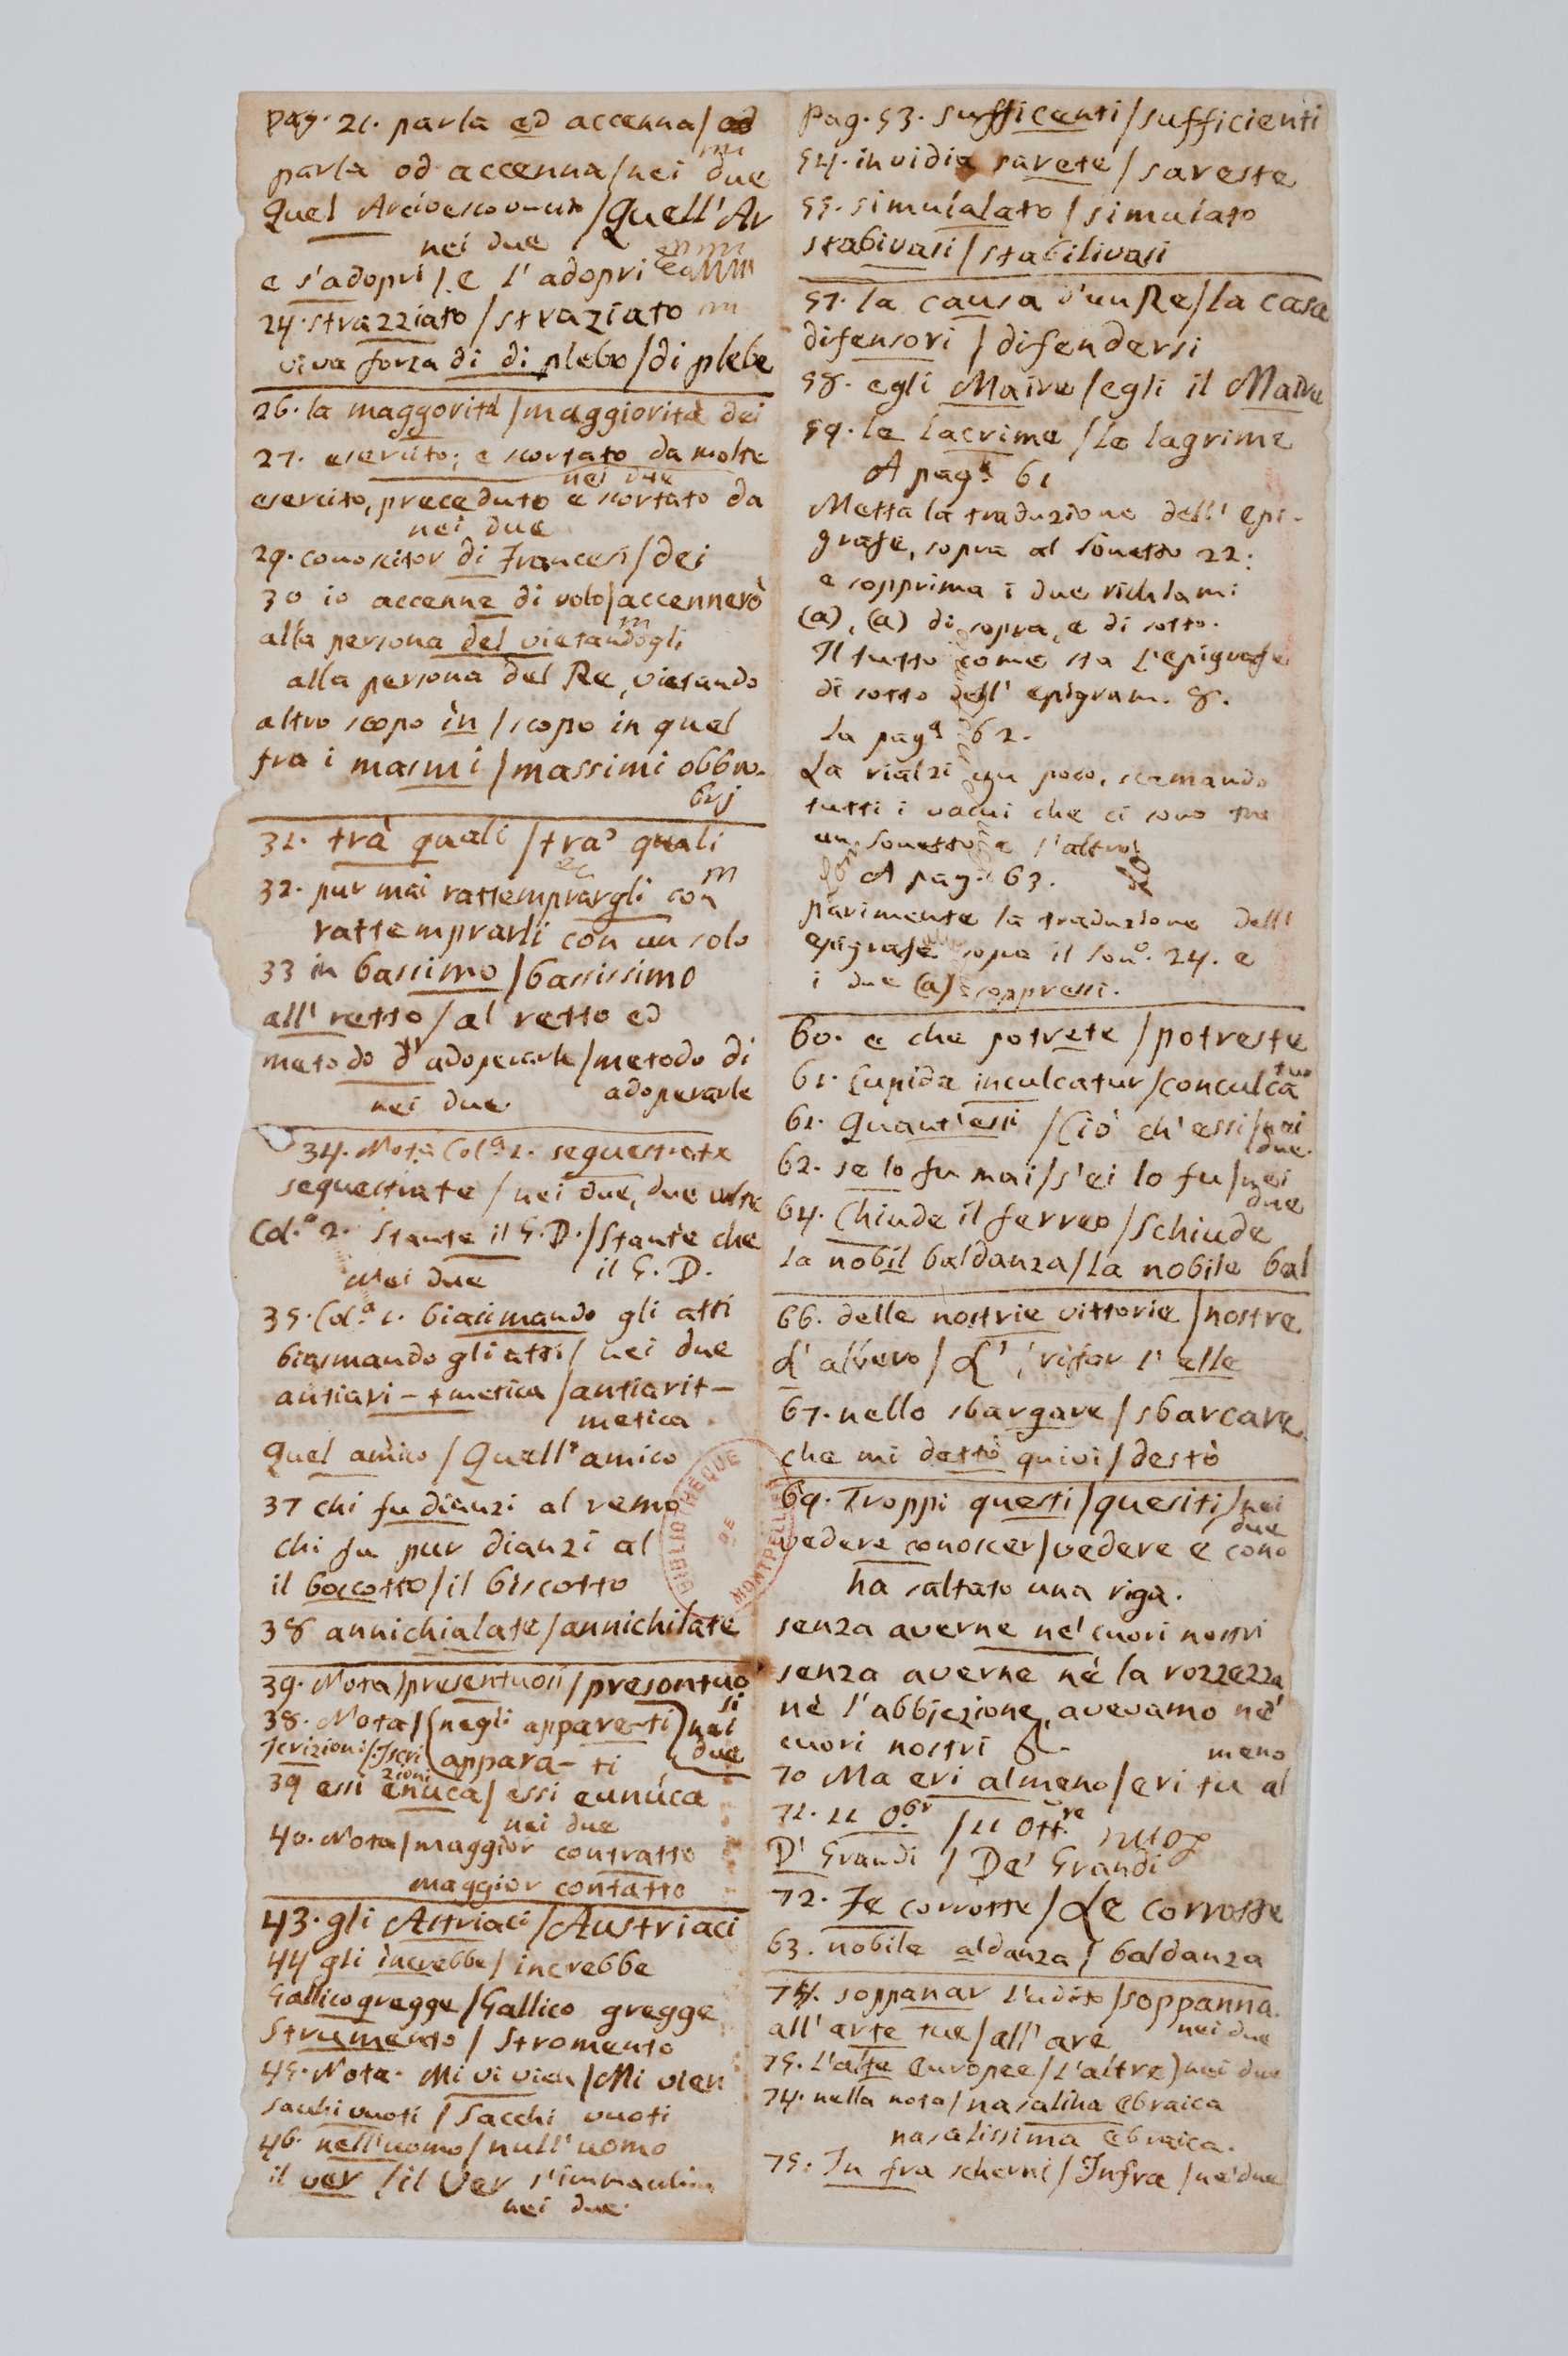 pag. 21. parla ed accenna/od
parla od accenna/nei due
Quel Arcivescovato/Quell'Ar
nei due
e s'adopri/e l'adopri
24. strazziato/straziato
viva forza di di plebe/di plebe
26. la maggorità/maggiorità dei
27. esercito; e scortato da molte
nei due
esercito, preceduto e scortato da
nei due
29. conoscitor di Francesi/dei
30 io accenne di volo/accennerò
alla persona del vietandogli
alla persona del Re, vietando
altro scopo in/scopo in quel
fra i masmi/massimi obbro-
brj
31. trà quali/tra' quali
32. pur mai rattemprargli con
rattemprarli con un solo
33 in bassimo/bassissimo
all' retto/al retto ed
metodo d'adoperarle/metodo di
nei due. adoperarle
34. Nota Col.ª 1. sequestrate
sequestrate/nei due, due
Col.ª 2. Stante il G.D./Stante che
Nei due il G.D.
35. Col.ª 1. biasimando gli atti
biasmando gli atti/nei due
antiari-tmetica/antiarit-
metica.
Quel amico/Quell'amico
37 chi fu dianzi al remo
chi fu pur dianzi al
il boccotto/il biscotto
38 annichialate/annichilate
39. Nota/presentuosi/presontuo
si
38. Nota/(negli appare-ti) nei
Icrizioni/Iscrizioni (appara-ti due
39 essi enuca/essi eunuca
nei due
40. Nota/maggior contratto
maggior contatto
43. gli Astriaci/Austriaci
44 gli increbbe/increbbe
Gallicogregge/Gallico gregge
Strumento/Stromento
45. Nota. Mi vi vien/Mi vien
sachi vuoti/Sacchi vuoti
46. nell'uomo/null'uomo
il ver/il Ver
nei due.
Pag. 53. sufficenti/sufficienti
54. invidia sarete/sareste
55. simulalato/simulato
stabivasi/stabilivasi
57. la causa d'un Re/la casa
difensori/difendersi
58. egli Maire/egli il Maire
59. le lacrime/le lagrime
A pag.ª 61
Metta la traduzione dell'epi-
grafe, sopra al Sonetto 22:
e sopprima i due richiami
(a), (a) di sopra, e di sotto.
Il tutto come sta l'epigrafe
di sotto dell'epigram. 8.
La pag.ª 62.
La rialzi un poco, scemando
tutti i vacui che ci sono tra
un Sonetto e l'altro.
A pag.ª 63.
parimente la traduzione dell'
epigrafe sopra il Son.º 24. e
i due (a) soppressi.
60. e che potrete/potreste
61. Cupida inculcatur/conculca
tur
61. Quant'essi/Ciò ch'essi/nei
due.
62. se lo fu mai/s'ei lo fu/nei
due
64. Chiude il ferreo/Schiude
La nobil baldanza/La nobile bal
66. delle nostrie vittorie/nostre
d'albero/L'; rifar l'elle
67. nello sbargare/sbarcare
che mi dettò quivi/destò
69. Troppi questi/quesiti/nei
due
vedere conoscer/vedere e cono
ha saltato una riga.
senza averne ne' cuori nostri
senza averne nè la rozzezza
nè l'abbiezione, avevamo ne'
cuori nostri &.
70 Ma eri almeno/eri tu al
meno
71. 11 O.br/11 Ott.re
D' Grandi/De' Grandi
72. Fe corrotte/Le corrotte
63. nobile aldanza/baldanza
74. soppanar l'udito/soppanna.
nei due
all'arte tue/all'are
75. L'alte Europee/L'altre) nei due
74. nella nota/nasalina Ebraica
nasalissima Ebraica.
75. In fra scherni/Infra/nei due
BIBLIOTHÈQUE
DE
MONTPELLIER